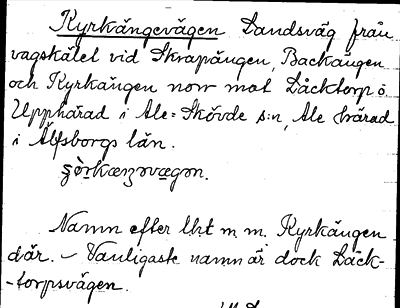 Kyrkängevägen Landsväg från
vägskälet vid Skrapängen, Backängen
och Kyrkängen norr mot Läcktorp o.
Upphärad i Ale-Skövde s:n, Ale härad
i Älfsborgs län.
Namn efter lht m.m. Kyrkängen
där. – Vanligaste namn är dock Läck-
-torpsvägen.